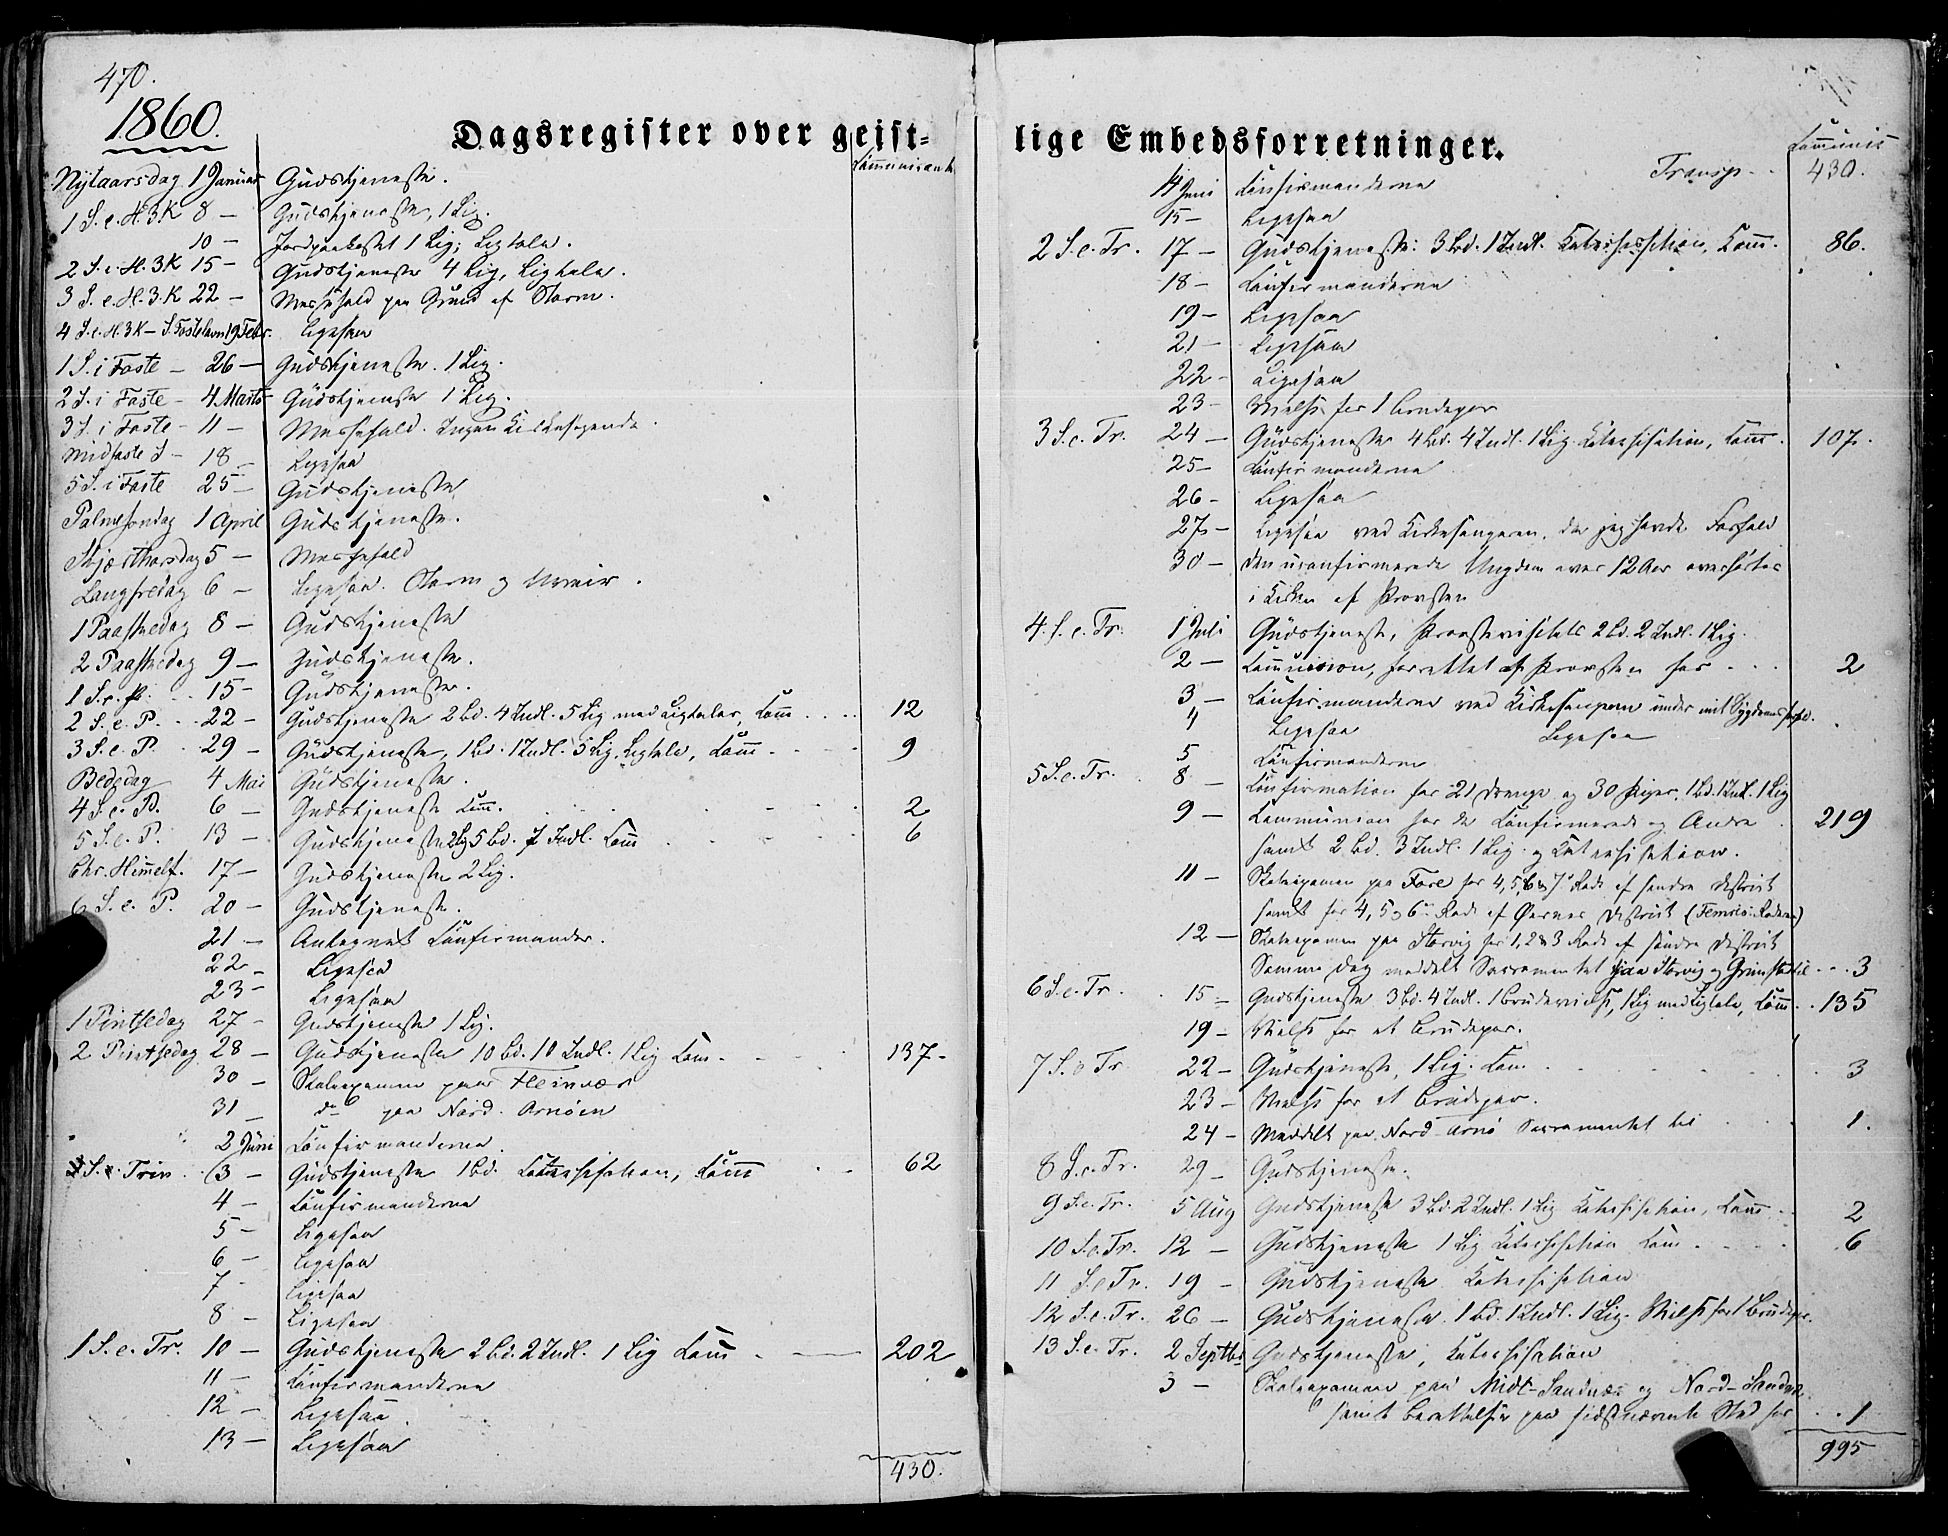 470.
1860.
Dagsregister over geist=
Communicant.
Nytaarsdag 1 Januar Gudstjeneste.
1 S. e. H. 3 K 8 — Gudstjeneste, 1 Lig.
10 — Jordpaakastet 1 Lig; Ligtale.
2 S. e. H. 3 K 15 — Gudstjeneste 4 Lig, Ligtale.
3 S. e. H. 3 K 22 — Messefald paa Grund af Storm.
4 S. e. H. 3 K — S. Fastelavn 19 Febr. Ligesaa
1 S. i Faste — 26 — Gudstjeneste. 1 Lig.
2 S. i Faste — 4 Marts Gudstjeneste 1 Lig.
3 S. i Faste — 11 — Messefald. Ingen Kirkesøgende.
Midfaste S — 18 — Ligesaa
5 S. i Faste 25 — Gudstjeneste
Palmesondag 1 April Gudstjeneste.
Skjærthorsdag 5 — Messefald
Langfredag 6 — Ligesaa. Storm og Uveir.
1 Paaskedag 8 — Gudstjeneste
2 Paaskedag 9 — Gudstjeneste.
1 S. e. P. 15 — Gudstjeneste.
2 S. e. P. 22 — Gudstjeneste 2 Bd. 4 Indl. 5 Lig med Ligtaler, Com̄ 12
3 S. e. P. 29 — Gudstjeneste, 1 Bd. 1 Indl. 5 Lig, Ligtale, Com̄ 9
Bededag 4 Mai Gudstjeneste.
4 S. e. P. 6 — Gudstjeneste Com̄. 2
5 S. e. P. 13 — Gudstjeneste 2 Lig 5 Bd. 7 Indl. Com̄ 6
Chr. Himmelf. 17 — Gudstjeneste 2 Lig.
6 S. e. P. 20 — Gudstjeneste.
21 — Antegnet Confirmander.
22 — Ligesaa
23 — Ligesaa
1 Pintsedag 27 — Gudstjeneste 1 Lig.
2 Pintsedag 28 — Gudstjeneste 10 Bd. 10 Indl. 1 Lig Com. 137
30 — Skoleexamen paa Fleinvær
31 — do paa Nord-Arnøen
2 Juni Confirmanderne.
S. Trin. 3 — Gudstjeneste 1 Bd. Catechisation, Com̄ 62
4 — Confirmanderne
5 — Ligesaa
6 — Ligesaa
7 — Ligesaa
8 — Ligesaa
1 S. e. Tr. 10 — Gudstjeneste 2 Bd. 2 Indl. 1 Lig Com̄ 202
11 — Confirmanderne
12 — Ligesaa.
13 — Ligesaa
430.
lige Embedsforretninger.
Communic
14 Juni Confirmanderne Transp. 430.
15 — Ligesaa
2 S. e. Tr. 17 — Gudstjeneste: 3 Bd. 1 Indl. Katechisation, Com̄. 86.
18 — Confirmanderne
19 — Ligesaa
21 — Ligesaa
22 — Ligesaa
23 — Vielse for 1 Brudepar
3 S. e. Tr. 24 — Gudstjeneste 4 Bd. 4 Indl. 1 Lig Katechisation, Com̄. 107.
25 — Confirmanderne
26 — Ligesaa
27 — Ligesaa ved Kirkesangeren, da jeg havde Forfald
30 — Den uconfirmerede Ungdom over 12 Aar overhørtes
i Kirken af Provsten
4. S. e. Tr. 1 Juli Gudstjeneste, Provstevisitats 2 Bd. 2 Indl. 1 Lig.
2 — Communion, forrettet af Provsten for 2
3 — Confirmanderne ved Kirkesangeren under mit Sygdomsforfald.
4 Ligesaa Ligesaa
5 Confirmanderne
5 S. e. Tr. 8 — Confirmation for 21 Drenge og 30 Piger, 1 Bd. 1 Indl. 1 Lig
9 — Communion for de Confirmerede og Andre 219
samt 2 Bd. 3 Indl. 1 Lig og Katechisation.
11 — Skoleexamen paa Fore for 4, 5, 6 & 7 Rode af søndre District
samt for 4, 5 og 6 Rode af Ørnes District (Femris-Roderne)
12 — Skoleexamen paa Storvig for 1, 2 & 3 Rode af søndre District
Samme Dag meddelt Sacramentet paa Storvig og Grimstad til 3
6 S. e. Tr. 15 — Gudstjeneste 3 Bd. 4 Indl. 1 Brudevielse, 1 Lig med Ligtale, Com̄. 135
19 — Vielse for et Brudepar.
7 S. e. Tr. 22 — Gudstjeneste, 1 Lig. Com. 3
23 — Vielse for et Brudepar.
24 — Meddelt paa Nord-Arnø Sacramentet til 1.
8 S. e. Tr. 29 — Gudstjeneste.
9 S. e. Tr. 5 Aug Gudstjeneste 3 Bd. 2 Indl. 1 Lig Katechisation, Com̄ 2
10 S. e. Tr. 12 — Gudstjeneste 1 Lig Katechisation Com. 6
11 S. e. Tr. 19 — Gudstjeneste Katechisation
12 S. e. Tr. 26 — Gudstjeneste. 1 Bd. 1 Indl. 1 Lig. Vielse for 1 Brudepar.
13 S. e. Tr. 2 Septbr Gudstjeneste, Katechisation
3 — Skoleexamen paa Midt-Sandnæs og Nord-Sandnæs
samt Berettelse paa sidstnævnte Sted for 1
995